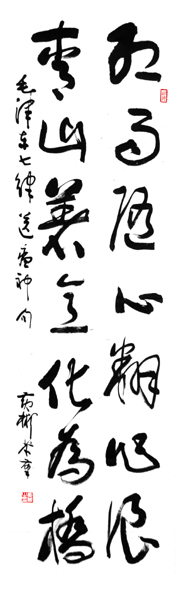 红雨随心翻作浪
青山着意化为桥
毛泽东七律送瘟神句